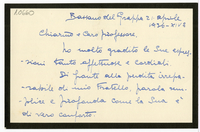 10660
Bassano del Grappa 2. aprile
1934-XII
Chiarmo e Caro professore,
ho molto gradito le Sue espres-
sioni tanto affettuose e cordiali.
Di fronte alla perdita irrepa-
rabile di mio fratello, parola sem-
plice e profonda come la Sua è
di vero conforto.